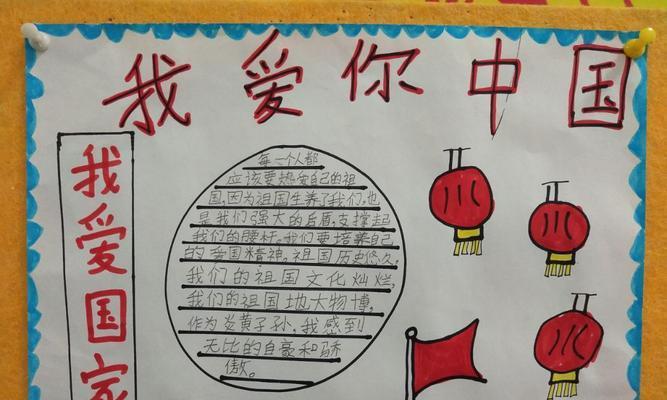 我爱你中国
我爱国家
每一个人都
应该要热爱自己的祖
国,因为祖国生养了我们,也
是我们强大的后盾,支撑起
我们的腰杆。我们要培养自己
的爱国精神。祖国历史悠久,
我们的祖国文化灿烂,
我们的祖国地大物博,
作为炎黄子孙,我感到
无比的自豪和骄
傲。